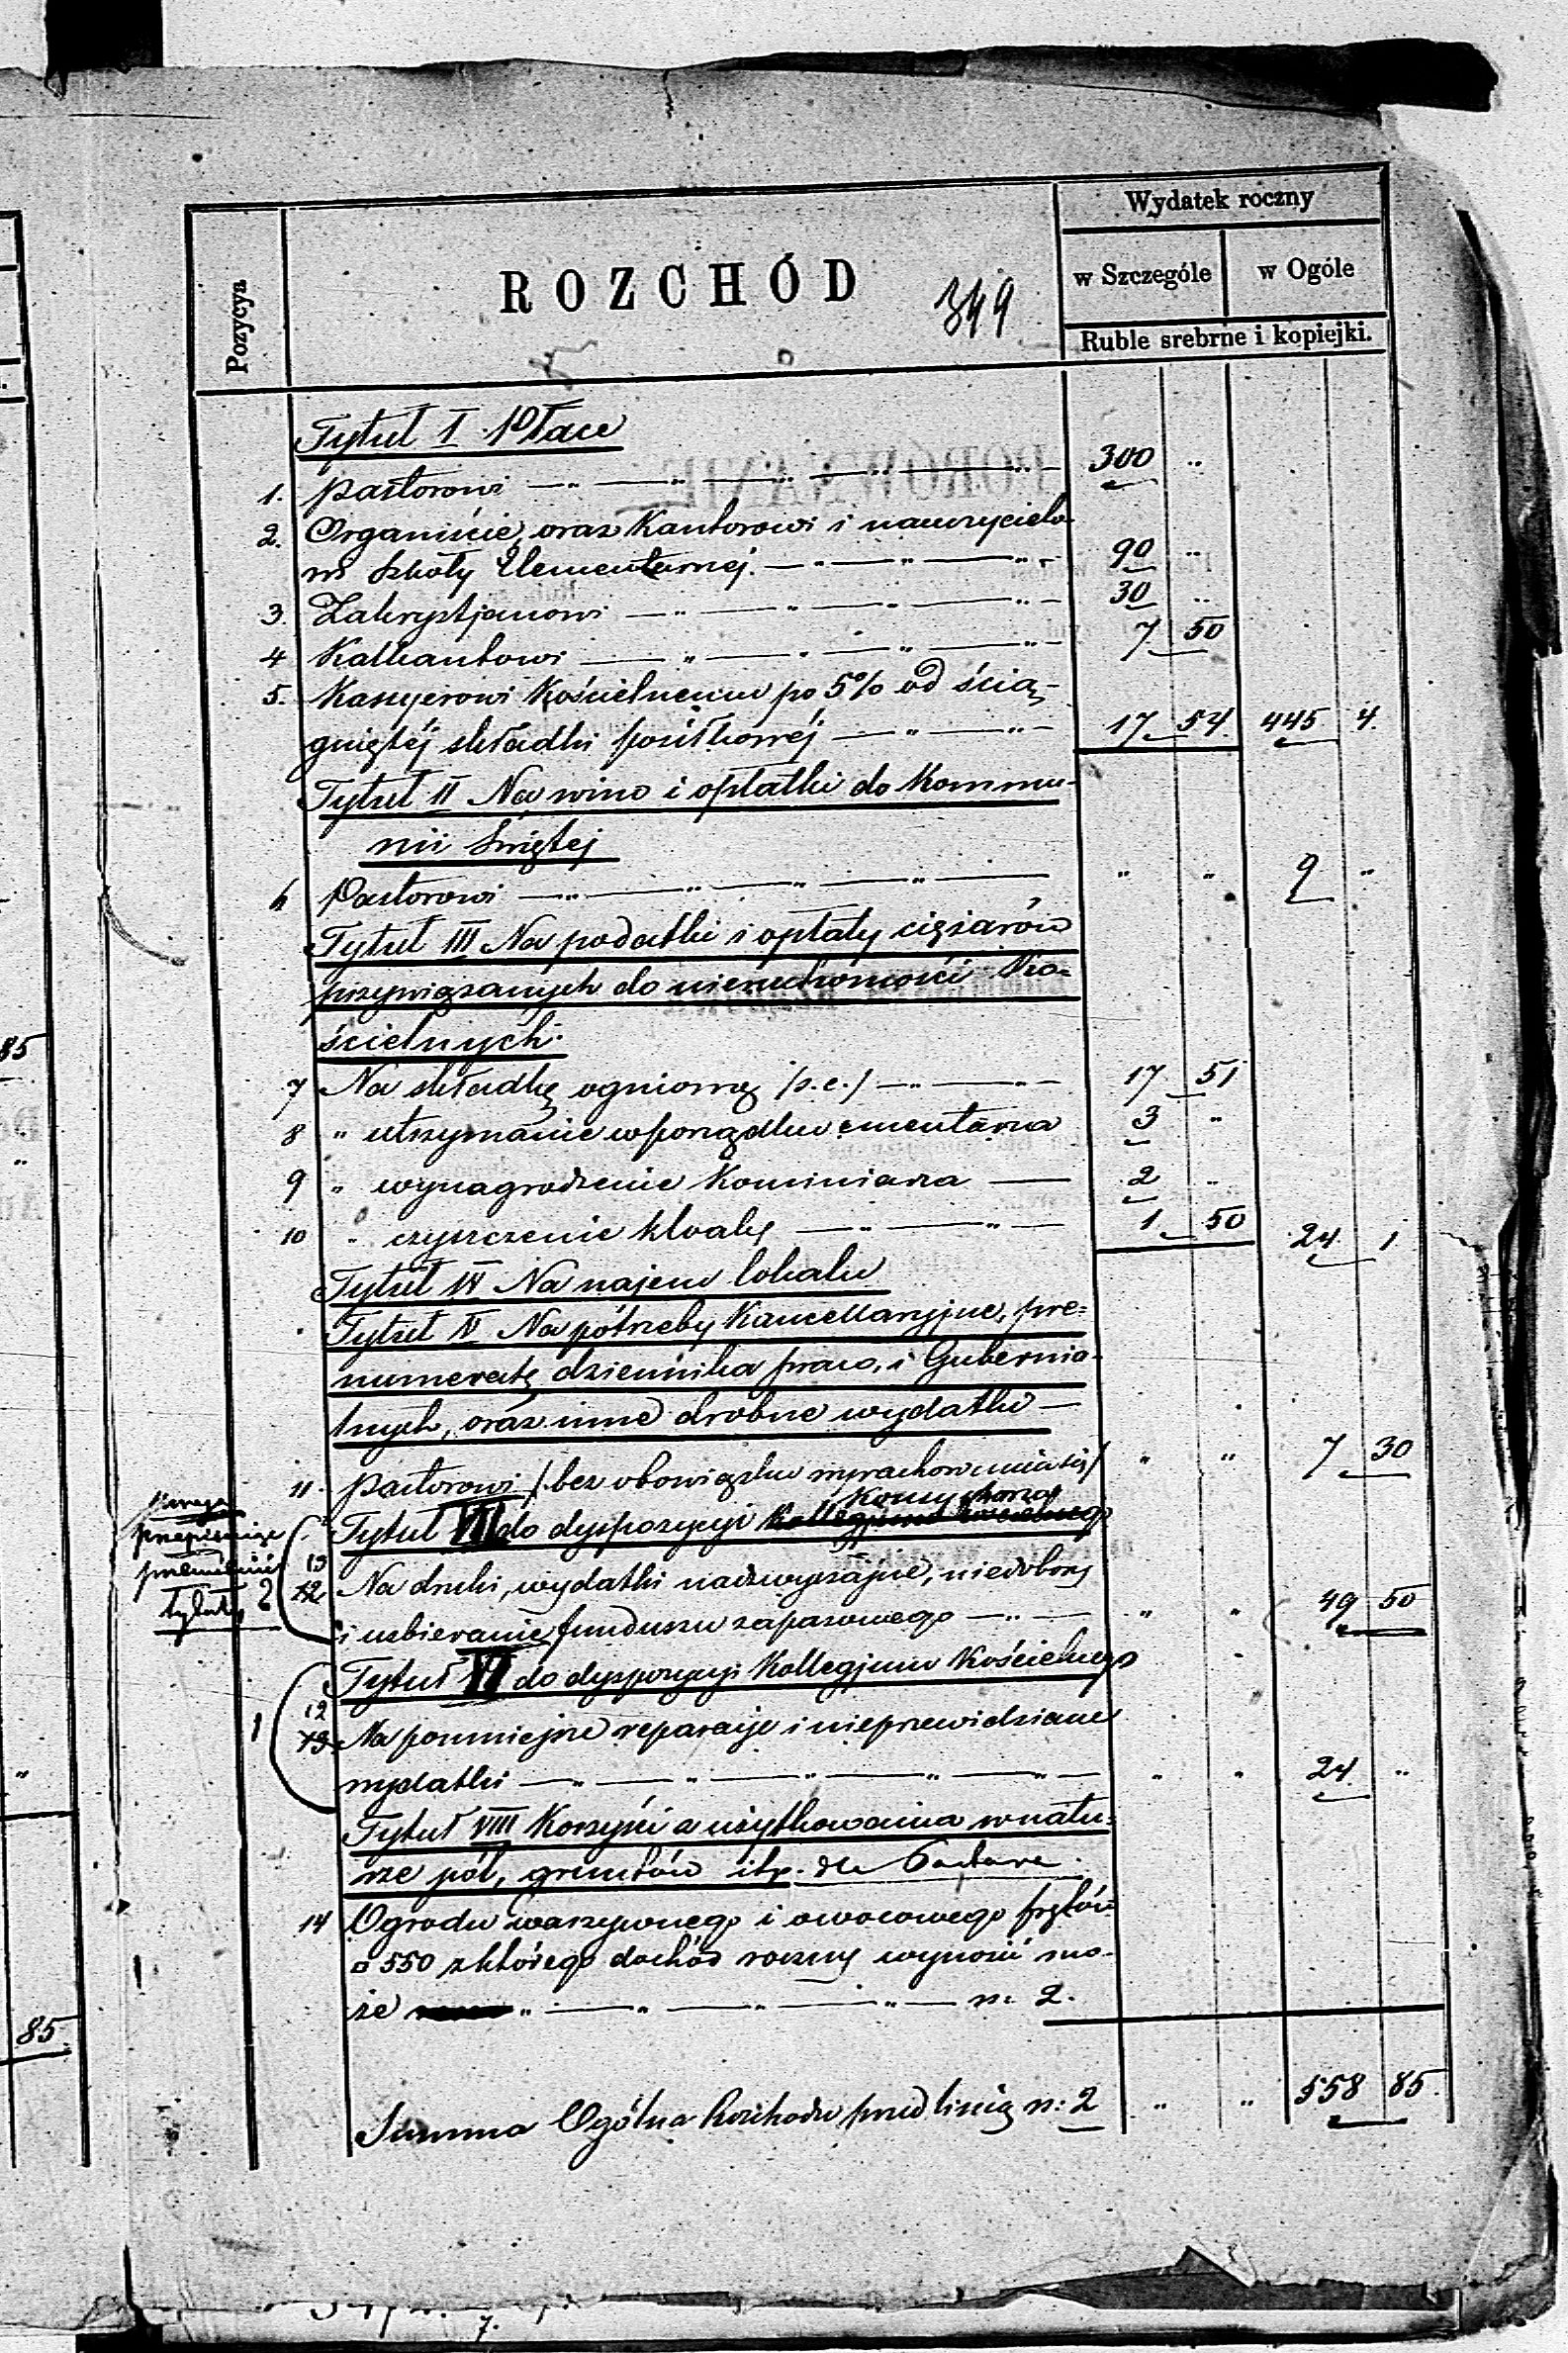 Wydatek roczny
Pozycya
ROZCHÓD
349
w Szczególe w Ogóle
Ruble srebrne i kopiejki.
Tytuł I Płace
1. Pastorowi 300 "
2. Organiście, oraz Kantorowi i nauczycielo-
wi Szkoły Elementarnej. 90 "
3. Zakrystjanowi 30 "
4 Kalkantowi 7 50
5. Kassyerowi Kościelnemu po 5% od ścią-
gniętéj składki posiłkowéj 17 54. 445 4.
Tytuł II Na wino i opłatki do Kommu-
nii Świętej
6 Pastorowi " " 9 "
Tytuł III Na podatki i opłaty ciężarów
przywiązanych do nieruchomości Ko-
ścielnych.
7 Na składkę ogniową /s.c./ 17 51
8 " utrzymanie w porządku cmentarza 3 "
9 " wynagrodzenie Kominiarza 2 "
10 " czyszczenie kloaki 1 50 24 1
Tytuł IV Na najem lokalu
Tytuł V Na potrzeby Kancellaryjne, pre=
numeratę dziennika praw, i Gubernia-
lnych, oraz inne drobne wydatki
11. Pastorowi /bez obowiązku wyrachowania się/ " " 7 30
Tytuł VII do dyspozycyi Kollegjum Kościelnego
Konsystorza
13
12 Na druki, wydatki nadzwyczajne, niedobory
i uzbieranie funduszu zapasowego " " 49 50
tytuły
Tytuł VI do dyspozycyi Kollegjum Kościelnego
12
13 Na pomniejsze reparacje i nieprzewidziane
wydatki " " 24. "
Tytuł VIII Korzyści z użytkowania w natu=
rze pól, gruntów itp. dla Pastora.
14 Ogrodu warzywnego i owocowego prętów
□ 550 z którego dochód roczny wynosić mo-
że r: 2.
Summa Ogólna Rozchodu przed linią r: 2 " " 558 85.
85
"
"
85.
7.